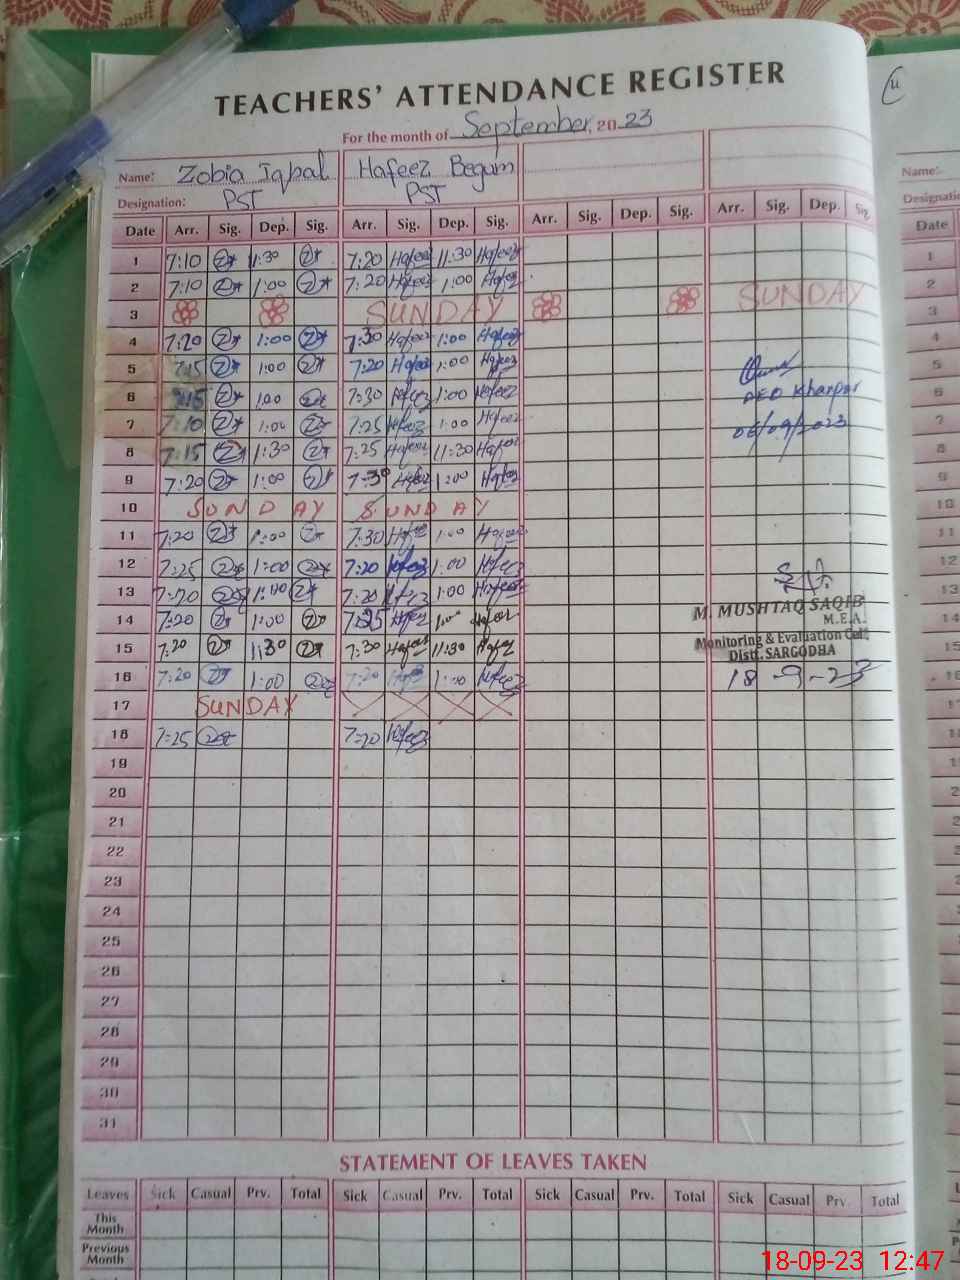 TEACHERS' ATTENDANCE REGISTER
For the month of September, 2023
Name: Zobia Iqbal Hafeez Begum
Designation: PST PST
Date Arr. Sig. Dep. Sig. Arr. Sig. Dep. Sig. Arr. Sig. Dep. Sig. Arr. Sig. Dep. Sig.
1 7:10 11:30 7:20 Hafeez 11:30 Hafeez
2 7:10 1:00 7:20 Hafeez 1:00 Hafeez
3 SUNDAY SUNDAY
4 7:20 1:00 7:30 Hafeez 1:00 Hafeez
5 7:15 1:00 7:20 Hafeez 1:00 Hafeez
6 7:15 1:00 7:30 Hafeez 1:00 Hafeez
7 7:10 1:00 7:25 Hafeez 1:00 Hafeez
8 7:15 11:30 7:25 Hafeez 11:30 Hafeez
9 7:20 1:00 7:30 Hafeez 1:00 Hafeez
06/09/2023
10 SUNDAY SUNDAY
11 7:20 1:00 7:30 Hafeez 1:00 Hafeez
12 7:25 1:00 7:20 Hafeez 1:00 Hafeez
13 7:20 1:00 7:20 Hafeez 1:00 Hafeez
14 7:20 1:00 7:25 Hafeez 1:00 Hafeez
15 7:20 11:30 7:30 Hafeez 11:30 Hafeez
16 7:20 1:00 7:20 Hafeez 1:00 Hafeez
M. MUSHTAQ SAQIB
M.E.A.
Monitoring & Evaluation Cell
Distt. SARGODHA
18-9-23
17 SUNDAY
18 7:25 7:20 Hafeez
19
20
21
22
23
24
25
26
27
28
29
30
31
STATEMENT OF LEAVES TAKEN
Leaves Sick Casual Prv. Total Sick Casual Prv. Total Sick Casual Prv. Total Sick Casual Prv. Total
This Month
Previous Month
Name:
Date
1
2
3
4
5
6
7
8
9
10
11
12
13
18-09-23 12:47